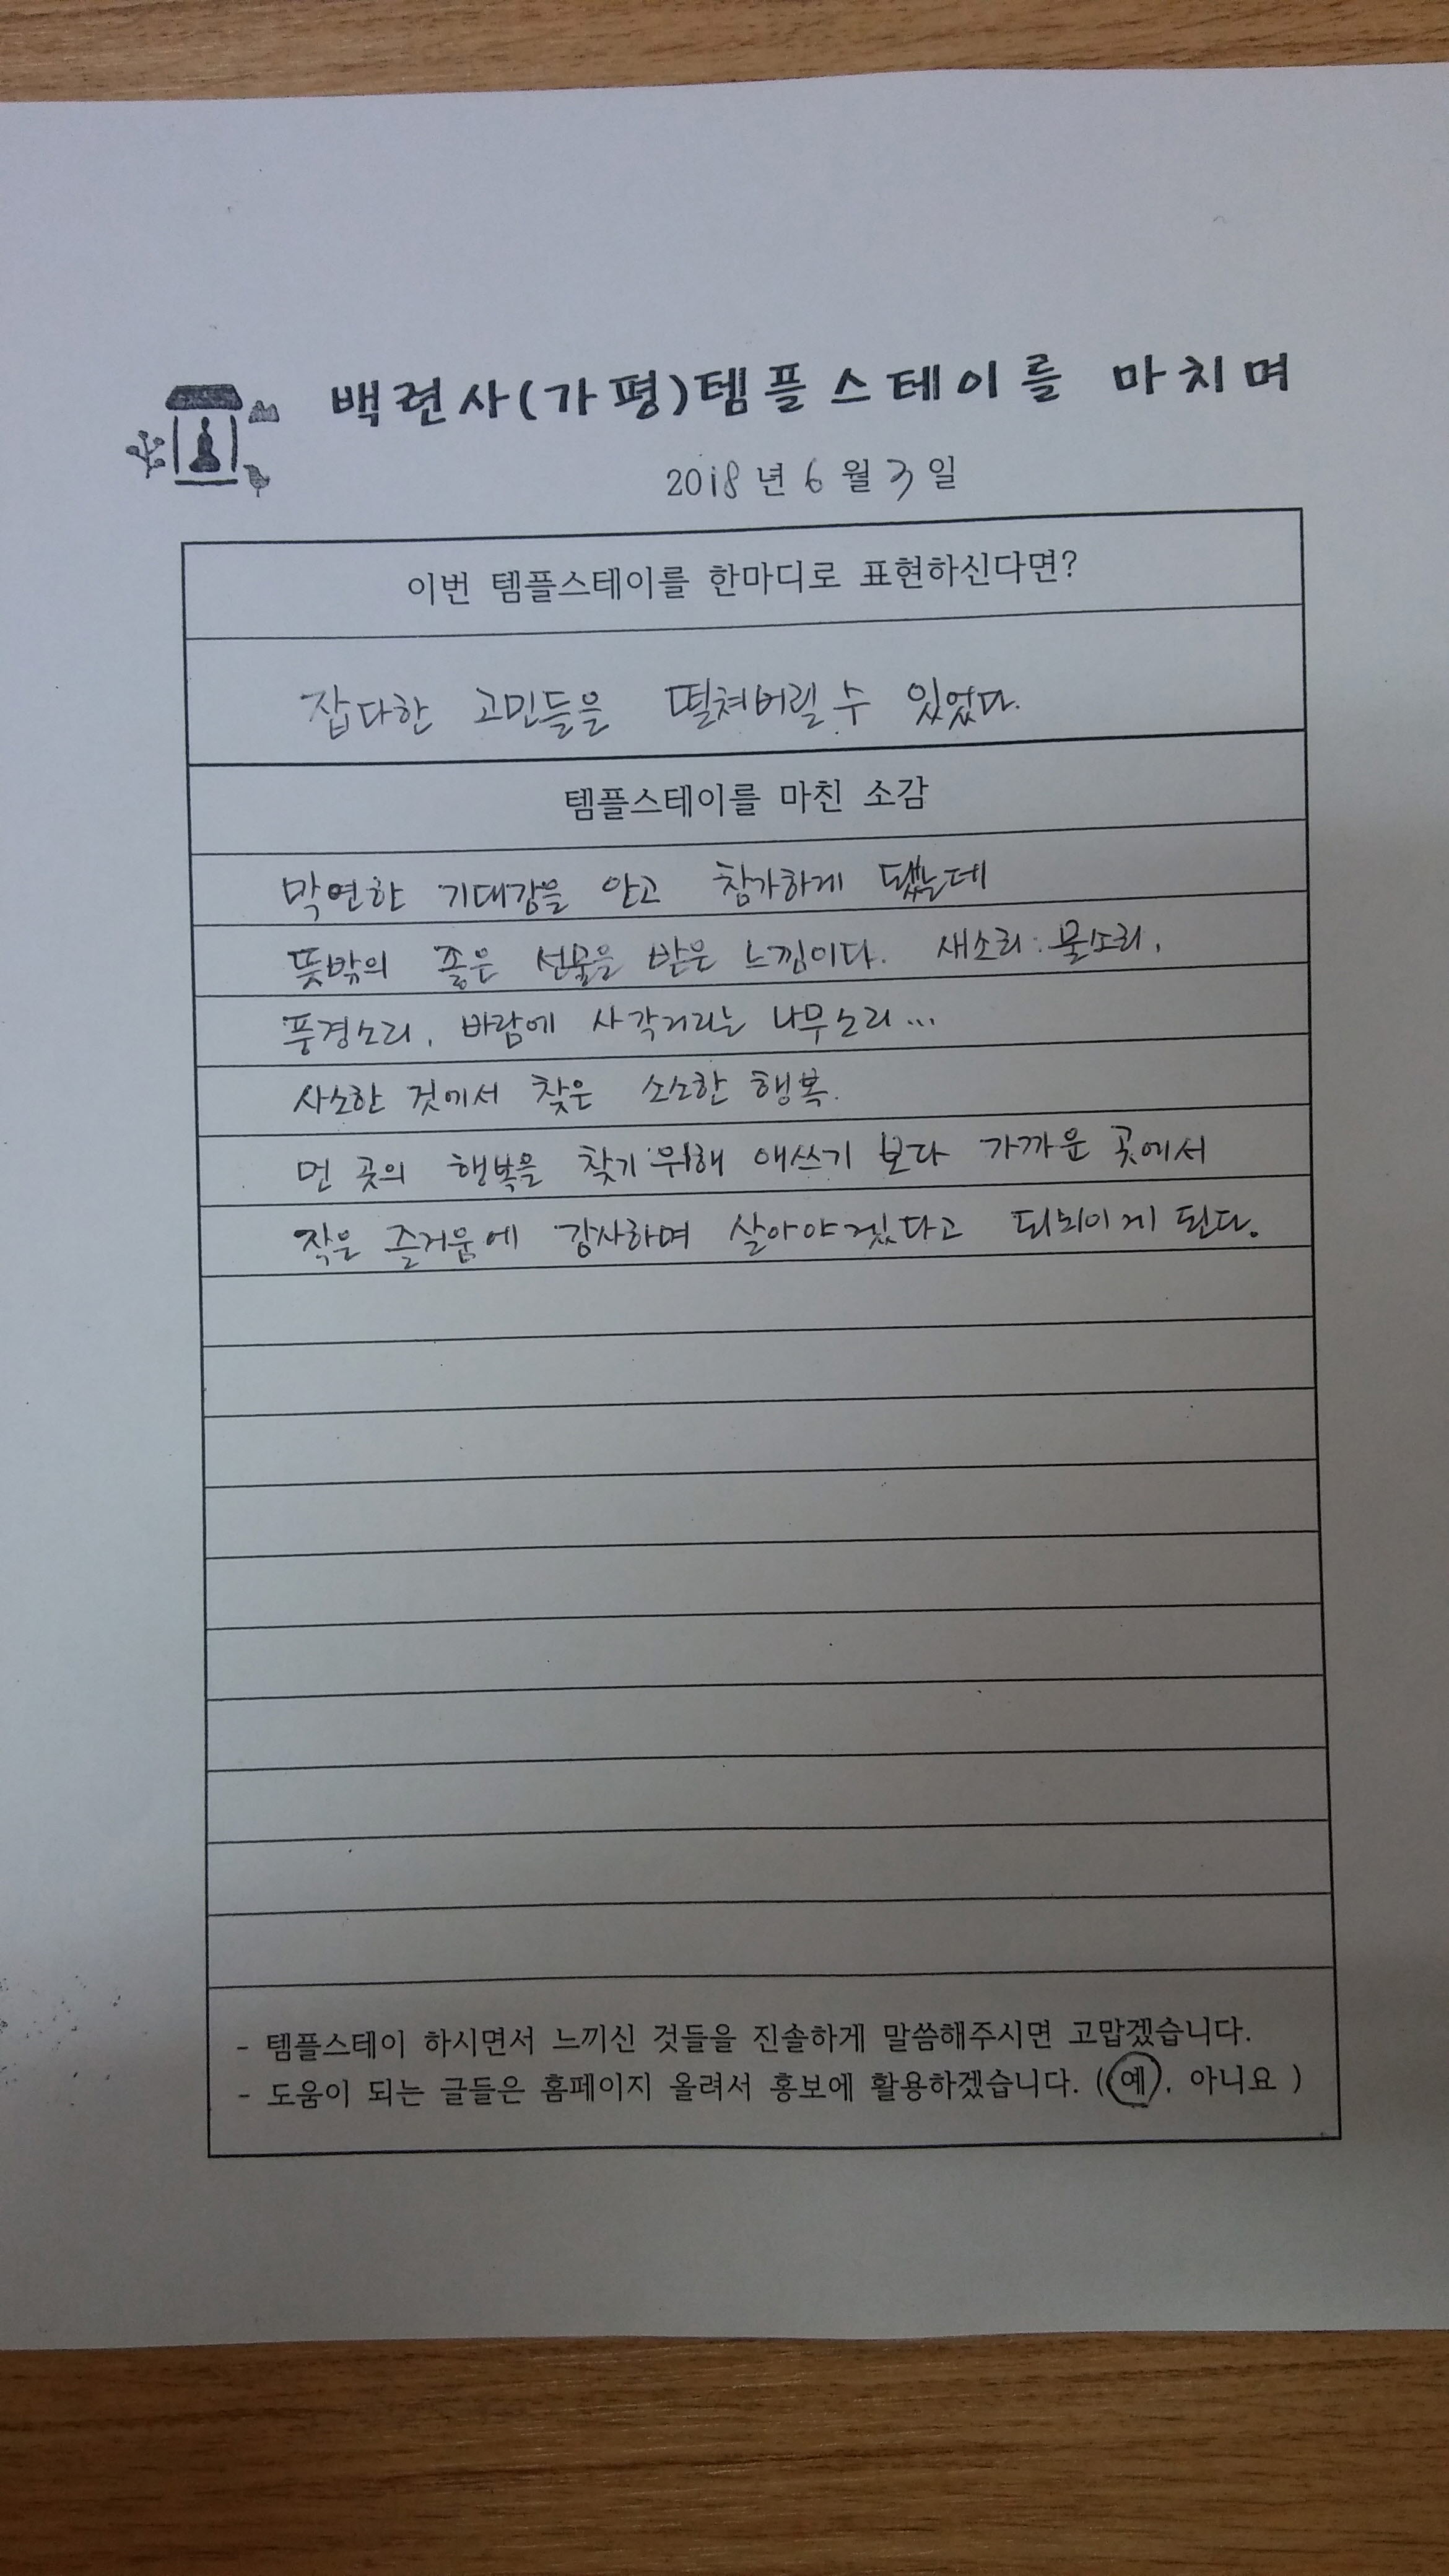 백련사(가평)템플스테이를 마치며
2018년 6월 3일
이번 템플스테이를 한마디로 표현하신다면?
잡다한 고민들을 떨쳐버릴 수 있었다.
템플스테이를 마친 소감
막연한 기대감을 안고 참가하게 됐는데
뜻밖의 좋은 선물을 받은 느낌이다. 새소리. 물소리,
풍경소리, 바람에 사각거리는 나무소리...
사소한 것에서 찾은 소소한 행복.
먼 곳의 행복을 찾기 위해 애쓰기 보다 가까운 곳에서
작은 즐거움에 감사하며 살아야겠다고 되뇌이게 된다.
- 템플스테이 하시면서 느끼신 것들을 진솔하게 말씀해주시면 고맙겠습니다.
- 도움이 되는 글들은 홈페이지 올려서 홍보에 활용하겠습니다. (예, 아니요 )